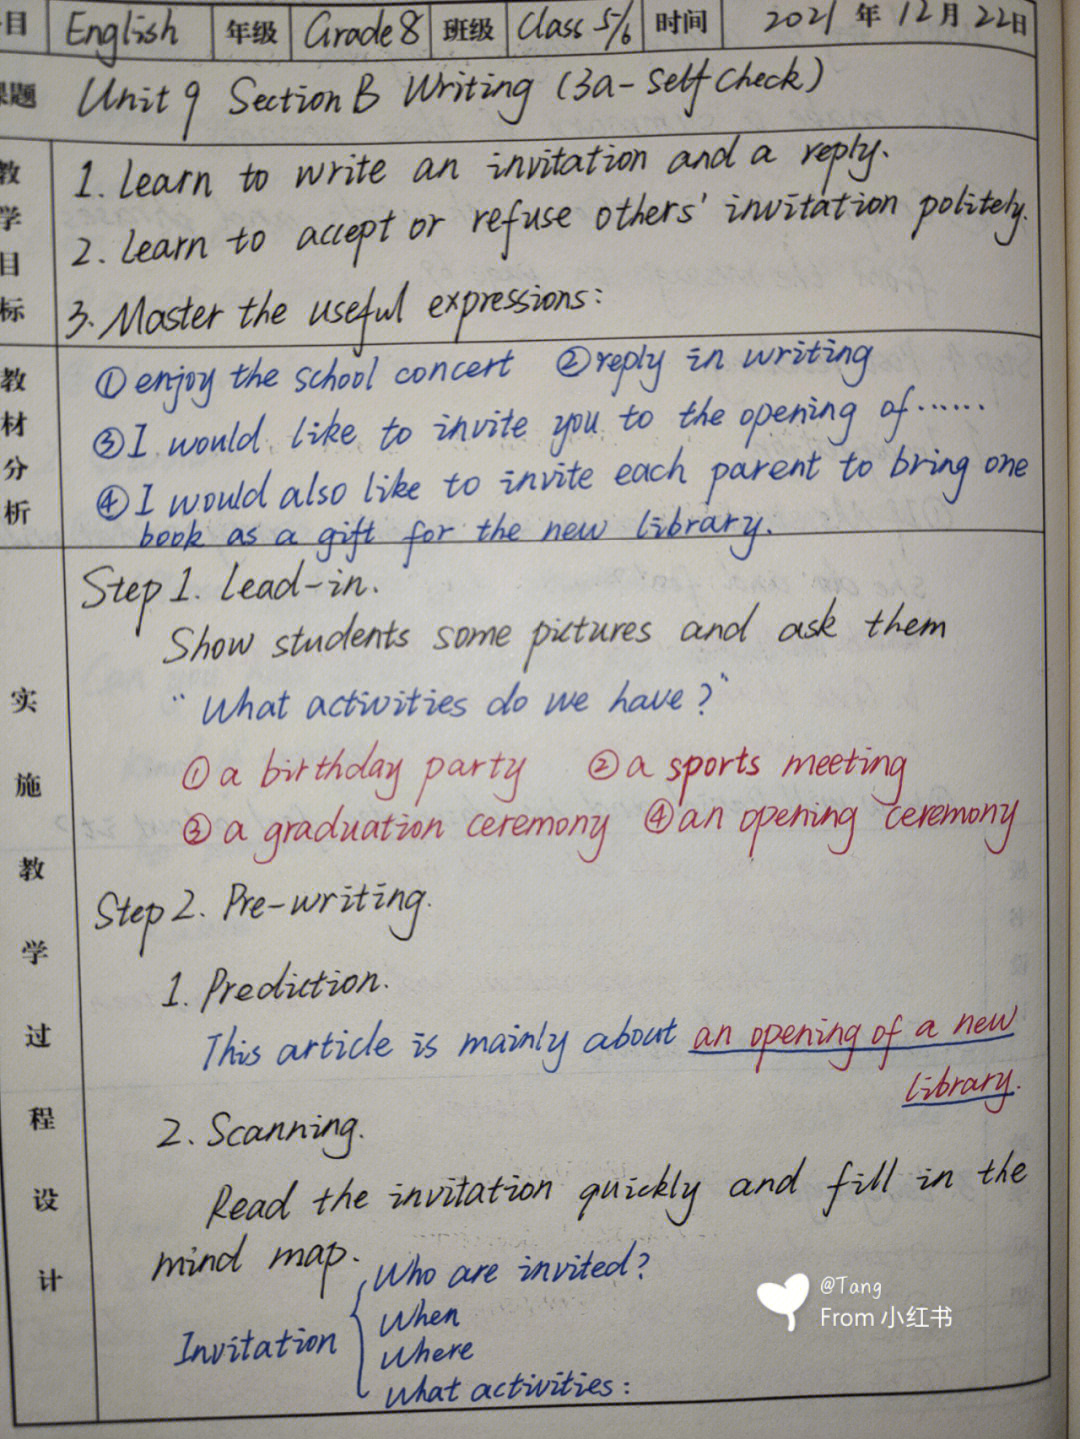 目 English 年级 Grade 8 班级 Class 5/6 时间 2021 年 12 月 22日
课题 Unit 9 Section B Writing (3a- Self check)
教学目标
1. Learn to write an invitation and a reply.
2. Learn to accept or refuse others' invitation politely.
3. Master the useful expressions:
教材分析
① enjoy the school concert ② reply in writing
③ I would like to invite you to the opening of ······
④ I would also like to invite each parent to bring one
book as a gift for the new library.
实施教学过程设计
Step 1. Lead-in.
Show students some pictures and ask them
"What activities do we have?"
① a birthday party ② a sports meeting
③ a graduation ceremony ④ an opening ceremony
Step 2. Pre-writing.
1. Prediction.
This article is mainly about an opening of a new
library.
2. Scanning.
Read the invitation quickly and fill in the
mind map.
Who are invited?
When
Invitation
Where
What activities:
@Tang
From 小红书